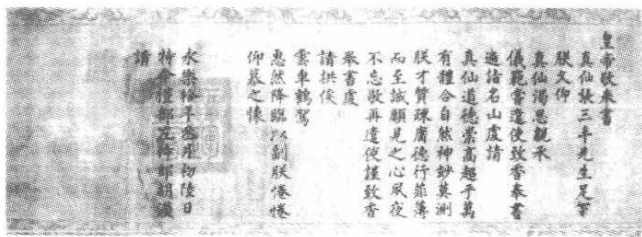 皇帝敬奉書
真仙張三丰先生足下
朕久仰
真仙渴思親承
儀範嘗遣使致香奉書
遍詣名山虔請
真仙道德崇高超乎萬
有體合自然神妙莫測
朕才質疎庸德行菲薄
而至誠願見之心夙夜
不忘敬再遣使謹致香
奉書虔
請拱俟
雲車鶴駕
惠然降臨以副朕惓惓
仰慕之懷
永樂拾年叁月初陸日
特命禮部侍郎胡濙
請